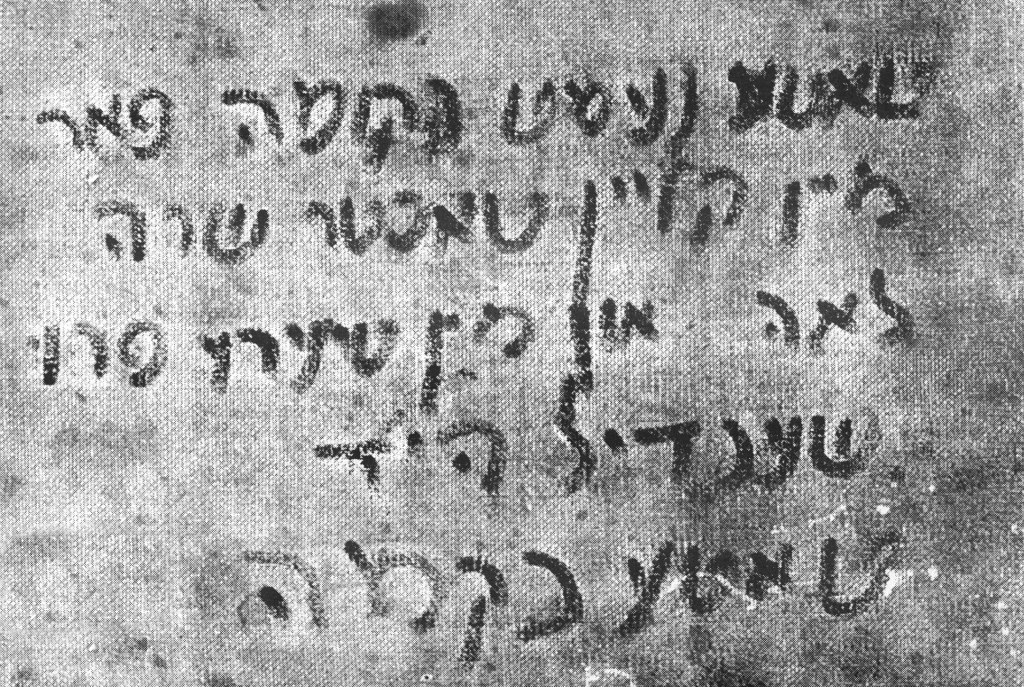 טאטע נעמט נקמה פאר
מיין קליין טאכטער שרה
לאה אין מיין טייערה פרוי
שענדיל הי״ד
טאטע נקמה